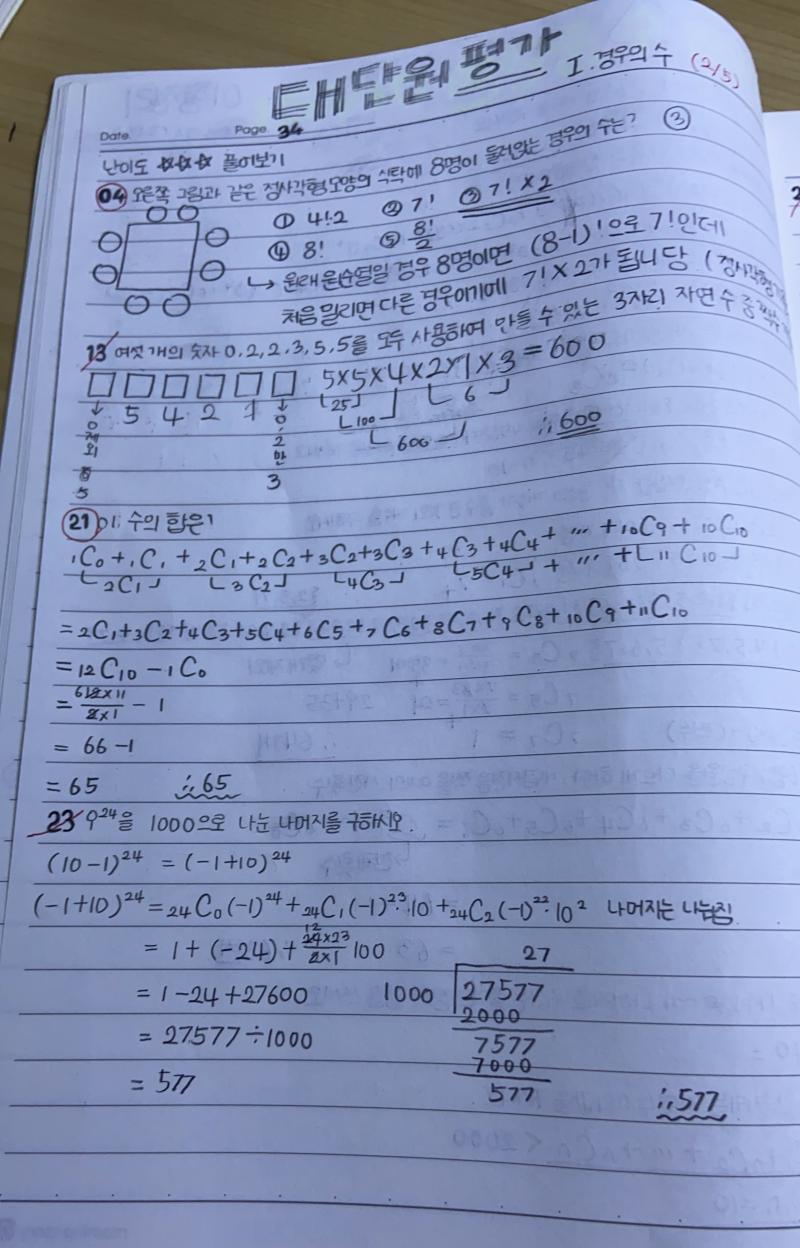 대단원 평가 I. 경우의 수 (2/5)
Date. Page. 34
난이도 ☆☆☆ 풀어보기
04 오른쪽 그림과 같은 정사각형 모양의 식탁에 8명이 둘러앉는 경우의 수는? ③
① 4!·2 ② 7! ③ 7! × 2
④ 8! ⑤ 8!/2
↳ 원래 원순열일 경우 8명이면 (8-1)!으로 7!인데
처음 밀리면 다른 경우이기에 7!×2가 됩니당 (정사각형
13 여섯 개의 숫자 0, 2, 2, 3, 5, 5를 모두 사용하여 만들 수 있는 3자리 자연수 중 짝수
□ □ □ □ □ □ 5×5×4×2×1×3 = 600
↓ 5 4 2 1 ↓ 25 6
0제외 0,2만 100
600 ∴ 600
5 3
21 수의 합은?
₁C₀ + ₁C₁ + ₂C₁ + ₂C₂ + ₃C₂ + ₃C₃ + ₄C₃ + ₄C₄ + ··· + ₁₀C₉ + ₁₀C₁₀
₂C₁ ₃C₂ ₄C₃ ₅C₄ + ··· + ₁₁C₁₀
= ₂C₁ + ₃C₂ + ₄C₃ + ₅C₄ + ₆C₅ + ₇C₆ + ₈C₇ + ₉C₈ + ₁₀C₉ + ₁₁C₁₀
= ₁₂C₁₀ - ₁C₀
= 6 12×11/2×1 - 1
= 66 - 1
= 65 ∴ 65
23 9²⁴을 1000으로 나눈 나머지를 구하시오.
(10-1)²⁴ = (-1+10)²⁴
(-1+10)²⁴ = ₂₄C₀(-1)²⁴ + ₂₄C₁(-1)²³·10 + ₂₄C₂(-1)²²·10² 나머지는 나눠짐
= 1 + (-24) + 12 24×23/2×1 100 27
= 1 - 24 + 27600 1000 27577
2000
= 27577 ÷ 1000 7577
7000
= 577 577 ∴ 577